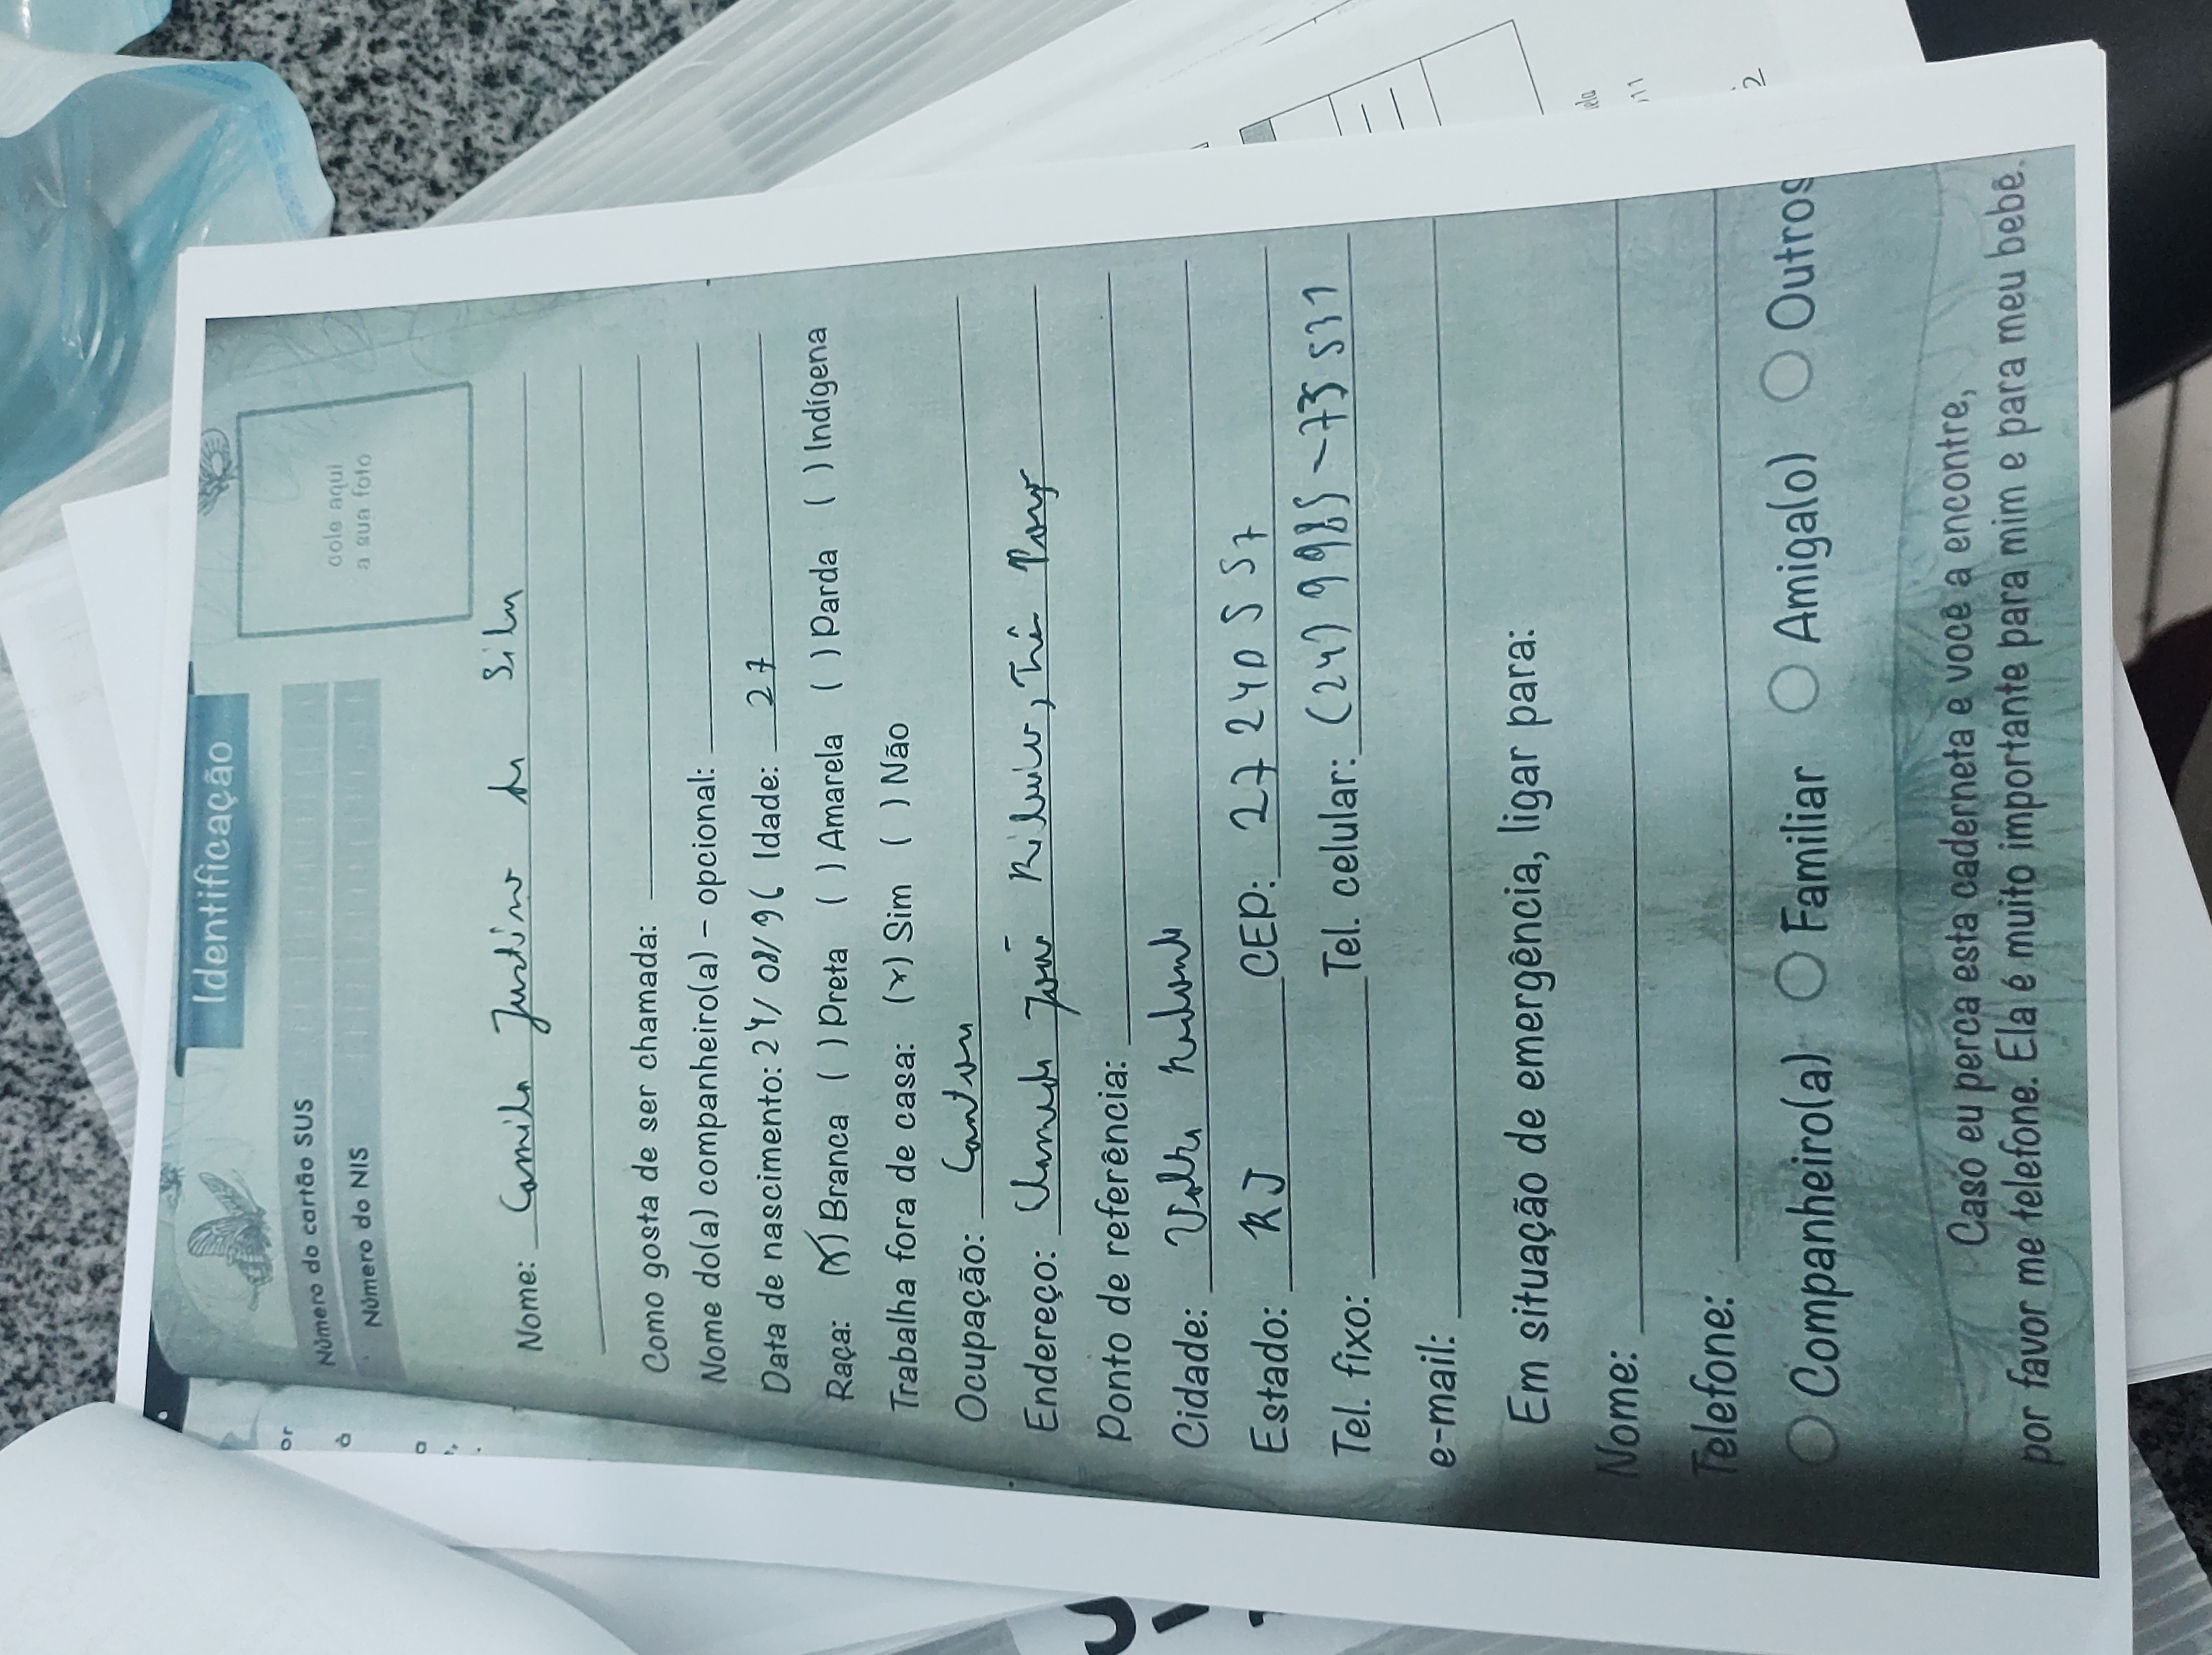 Identificação
cole aqui
a sua foto
Número do cartão SUS
Número do NIS
Nome: Camila Justino da Silva
Como gosta de ser chamada:
Nome do(a) companheiro(a) – opcional:
Data de nascimento: 24/08/96 Idade: 27
Raça: (x) Branca ( ) Preta ( ) Amarela ( ) Parda ( ) Indígena
Trabalha fora de casa: (x) Sim ( ) Não
Ocupação: Cantora
Endereço: João Ribeiro, Três Poços
Ponto de referência:
Cidade: Volta Redonda
Estado: RJ CEP: 27240557
Tel. fixo: Tel. celular: (24) 99985-73531
e-mail:
Em situação de emergência, ligar para:
Nome:
Telefone:
Companheiro(a) Familiar Amiga(o) Outros
Caso eu perca esta caderneta e você a encontre,
por favor me telefone. Ela é muito importante para mim e para meu bebê.